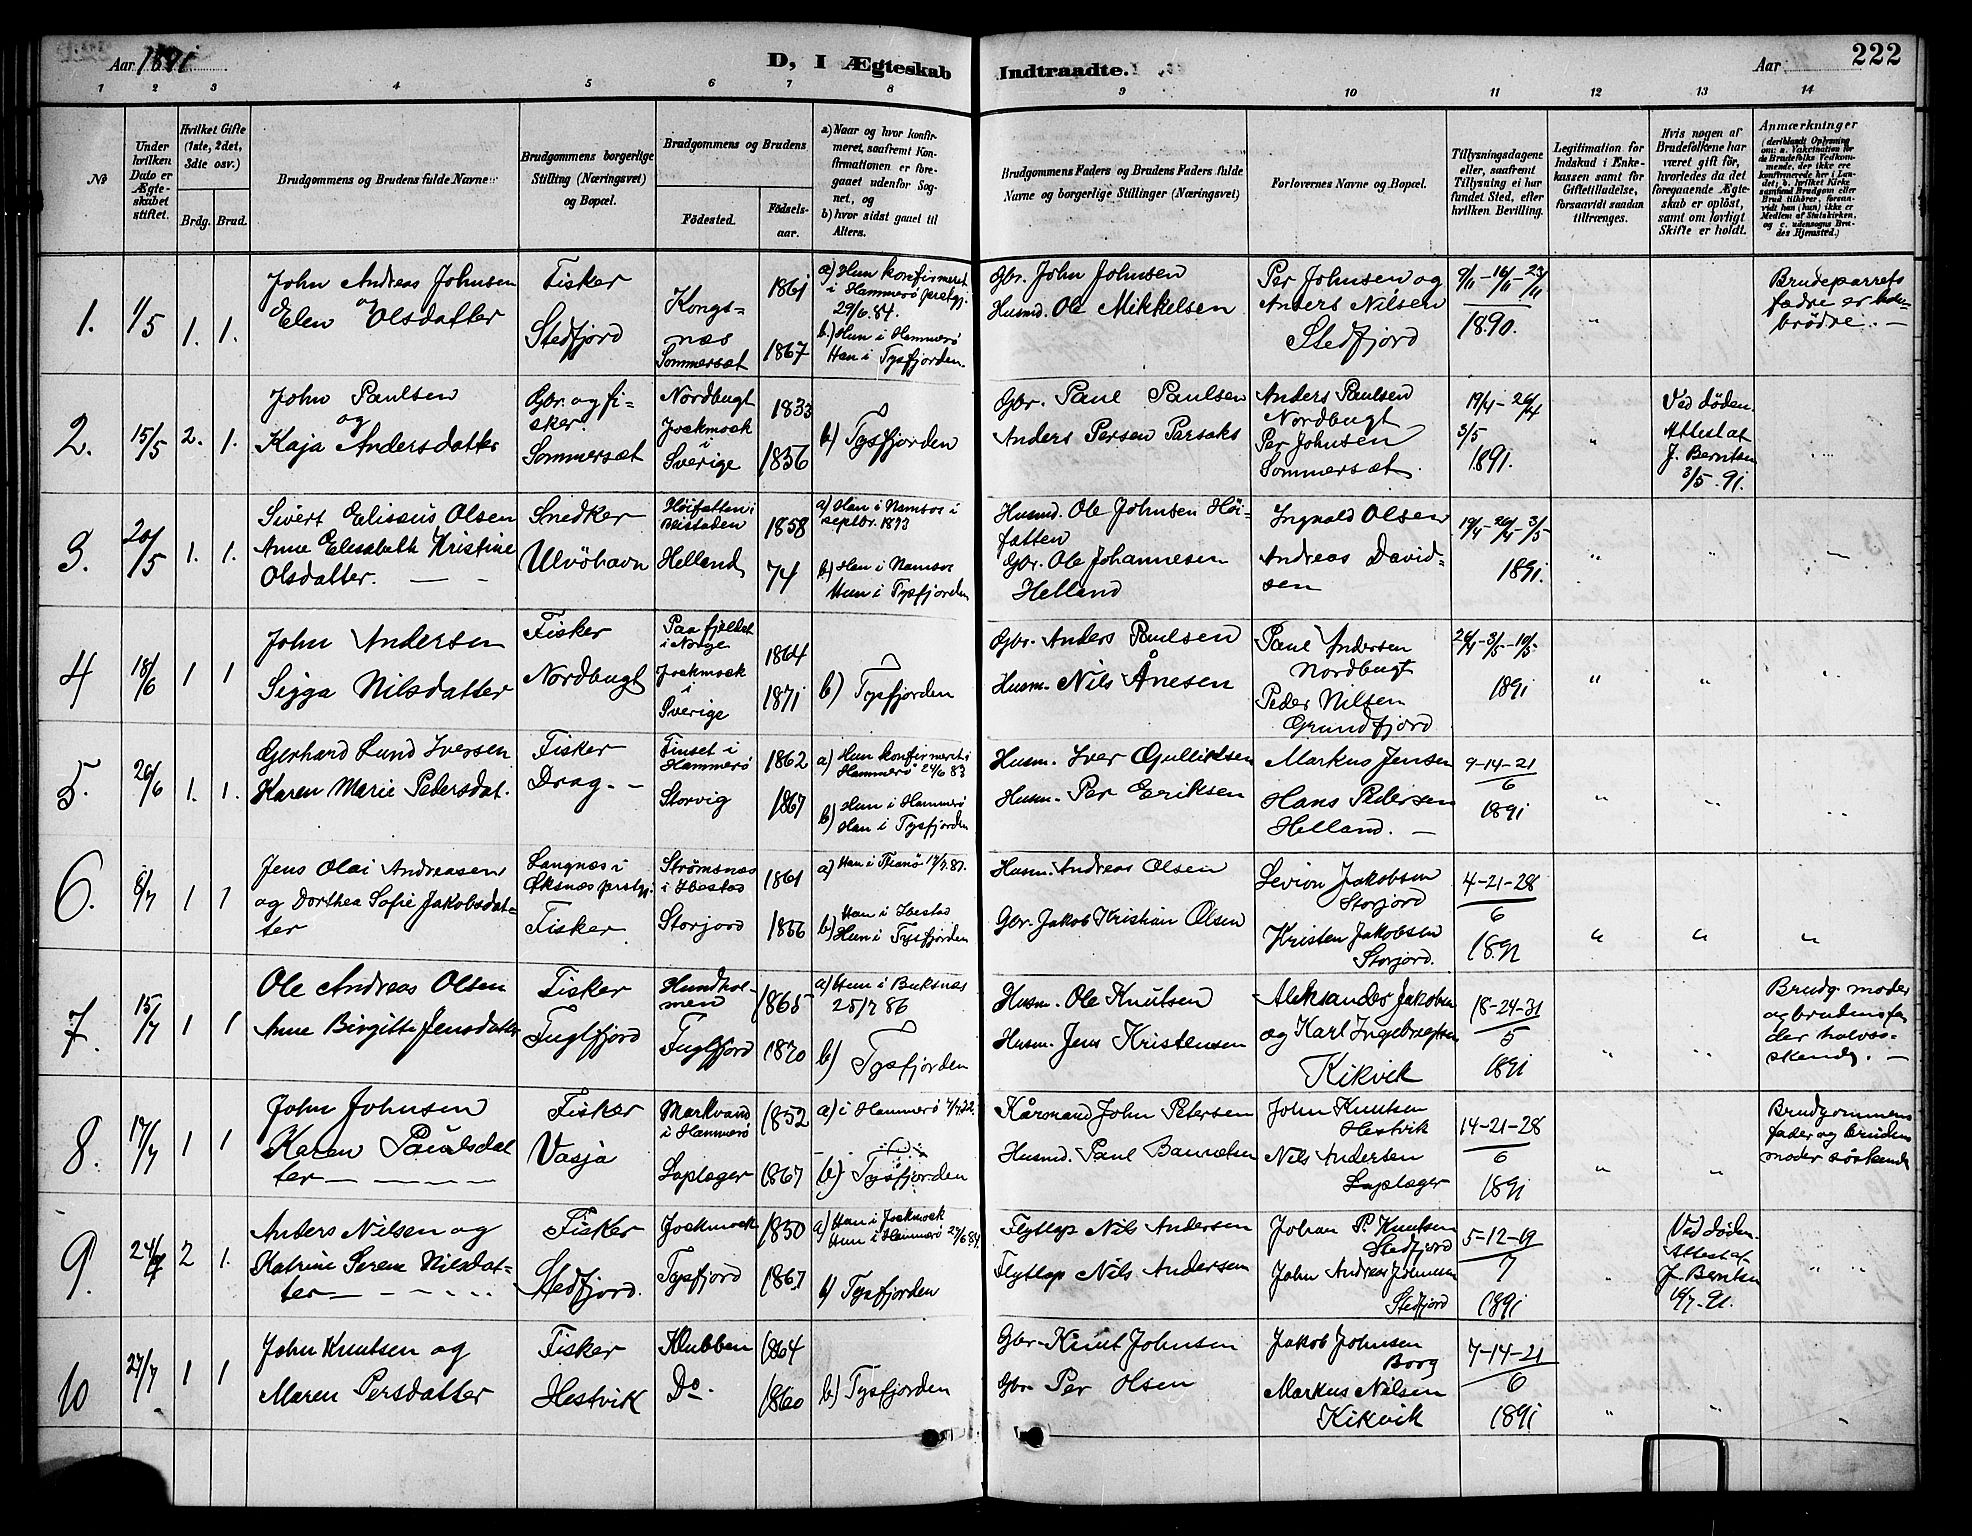 Aar 1891
D, I Ægteskab
Indtraadte.
Aar
222
1 2 3 4 5 6 7 8 9 10 11 12 13 14
No
Under hvilken Dato er Ægteskabet stiftet.
Hvilket Gifte (1ste, 2det, 3die osv.)
Brdg. Brud.
Brudgommens og Brudens fulde Navne
Brudgommens borgerlige Stilling (Næringsvei) og Bopæl.
Brudgommens og Brudens
Fødested.
Fødselsaar.
a) Naar og hvor konfirmeret, saafremt Konfirmationen er foregaaet udenfor Sognet, og
b) hvor sidst gaaet til Alters.
Brudgommens Faders og Brudens Faders fulde Navne og borgerlige Stillinger (Næringsvei)
Forlovernes Navne og Bopæl.
Tillysningsdagene eller, saafremt Tillysning ei har fundet Sted, efter hvilken Bevilling.
Legitimation for Indskud i Enkekassen samt for Giftetilladelse, forsaavidt saadan tiltrænges.
Hvis nogen af Brudefolkene har været gift før, hvorledes da det foregaaende Ægteskab er opløst, samt om lovligt Skifte er holdt.
Anmærkninger (deriblandt Oplysning om: a. Vakcination for de Brudefolks Vedkommende, der ikke ere konfirmerede her i Landet; b. hvilket Kirkesamfund Brudgom eller Brud tilhører, forsaavidt han (hun) ikke er Medlem af Statskirken, og c. udensogns Brudes Hjemsted.)
1. 1/5 1. 1.
John Andreas Johnsen
og
Elen Olsdatter
Fisker
Stedfjord
Kongsnæs
Sommersæt
1861
1867
a) Hun konfirmeret
i Hammerø prstgj.
29/6 84.
b) Hun i Hammerø
Han i Tysfjorden
Gbr. John Johnsen
Husmd. Ole Mikkelsen
Per Johnsen og
Anders Nilsen
Stedfjord
9/11-16/11-23/11
1890.
"
Brudeparrets
fædre er
brødre. —
2. 15/5 2. 1.
John Paulsen
og
Kaja Andersdatter
Gbr. og fisker
Sommersæt
Nordbugt
Jockmock
i
Sverige
1833
1856
b) Tysfjorden
Gbr. Paul Paulsen
Anders Persen Parsaks
Anders Paulsen
Nordbugt
Per Johnsen
Sommersæt
19/4-26/4
3/5
1891.
"
Ved døden.
Attest af
J. Berntsen
3/5 91.
3. 20/5 1. 1.
Sivert Elisæus Olsen
Anne Elisabeth Kristine
Olsdatter. — —
Snedker
Ulvöhavn
Höifatten i
Beistaden
Helland
1858
74
a) Han i Namsos i
septbr. 1873
b) Han i Namsos
Hun i Tysfjorden
Husmd. Ole Johnsen Höifatten
Gbr. Ole Johannesen
Helland
Ingvald Olsen
Andreas Davidsen
19/4-26/4-3/5
1891.
4 18/6 1 1
John Andersen
Sigga Nilsdatter
Fisker
Nordbugt
Paa fjeldet
i Norge
Jockmock
i
Sverige
1864
1871
b) Tysfjorden
Gbr. Anders Paulsen
Husm. Nils Ånesen
Paul Andersen
Nordbugt
Peder Nilsen
Grundfjord
26/4-3/5-10/5
1891
5. 26/6 1. 1.
Gerhard Lund Iversen
Karen Marie Pedersdat.
Fisker
Drag. —
Finset i
Hammerø
Storvig
1862
1867
a) Hun konfirmert i
Hammerø 24/6 83
b) Hun i Hammerø
Han i Tysfjorden
Husm. Iver
Husm. Per Eriksen
Markus Jensen
Hans Pedersen
Helland. —
9-14-21
6
1891
6. 8/7 1 1
Jens Olai Andreasen
og Dorthea Sofie Jakobsdatter
Langnæs i
Øksnæs prstgj.
Fisker
Strømsnæs
i Ibestad
Storjord
1861
1866
a) Han i Tranö 17/7 87.
b) Han i Ibestad
Hun i Tysfjorden
Husm. Andreas Olsen
Gbr. Jakob Kristian Olsen
Levion Jakobsen
Storjord
Kristen Jakobsen
Storjord.
4-21-28
6
1891
" " "
7. 15/7 1 1
Ole Andreas Olsen
Anne Birgitte Jensdatter
Fisker
Fuglfjord
Hundholmen
Fuglfjord
1865
1870
a) Hun i Buksnæs
25/7 86
b) Tysfjorden
Husm. Ole Knutsen
Husm. Jens Kristensen
Aleksander Jakobsen
og Karl Ingebregtsen
Kikvik
18-24-31
5
1891
Brudg. moder
og brudens fader
halvsøskende. —
8. 17/7 1 1
John Johnsen
Karen Paulsdatter — — — —
Fisker
Vasja
Markvand
i Hammerø
Laplæger
1852
1867
a) i Hammerø
b) Tysfjorden
Kårmand John Petersen
Husmd. Paul
John Knutsen
Hestvik
Nils Andersen
Laplæger
14-21-28
6
1891
Brudgommens
fader og brudens
moder söskende
9. 24/7 2 1.
Anders Nilsen og
Katrine Serene Nilsdatter — — — —
Fisker
Stedfjord.
Jockmock
Tysfjord
1850
1867
a) Han i Jockmock
Hun i Hammerø
b) Tysfjorden
Flytlap Nils Andersen
Flytlap Nils Andersen
Johan P. Knutsen
Stedfjord
John Andreas Johnsen
Stedfjord
5-12-19
7
1891
Ved døden.
Attest af
J. Berntsen
91.
10 27/7 1 1
John Knutsen og
Maren Persdatter
Fisker
Hestvik
Klubben
Do.
1864
1860
b) Tysfjorden
Gbr. Knut Johnsen
Gbr. Per Olsen
Jakob Johnsen
Borg
Markus Nilsen
Kikvik
7-14-21
6
1891